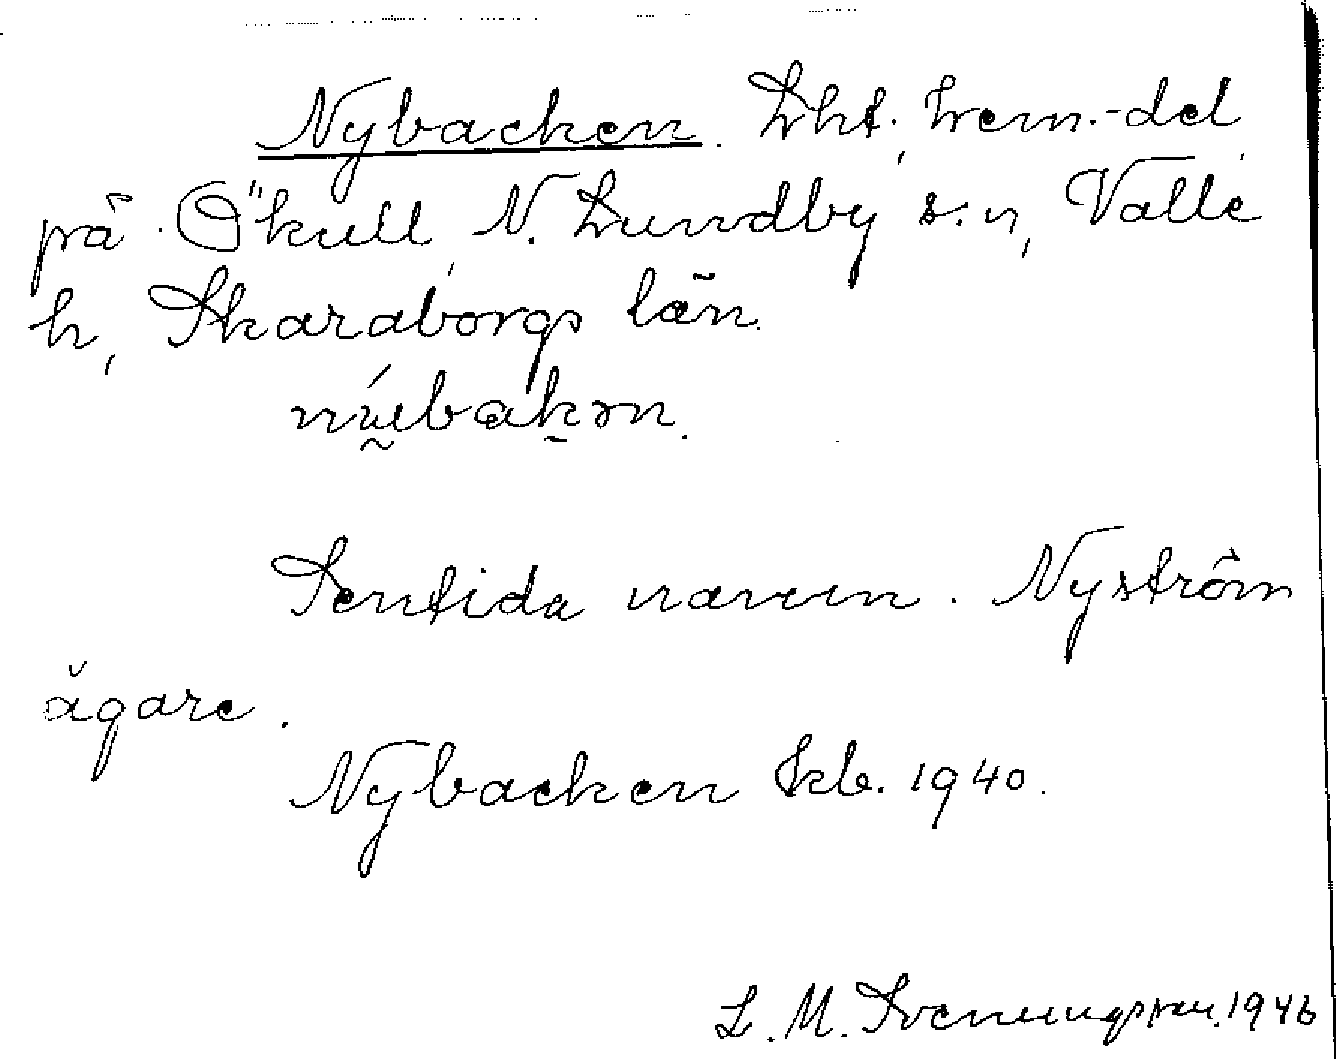 Nybacken. Lht, hem.-del
på Ökull, N. Lundby s:n, Valle
h, Skaraborgs län.
nýbakən.
Sentida namn. Nyström
ägare.
Nybacken kb. 1940.
L. M. Svenungsson. 1946